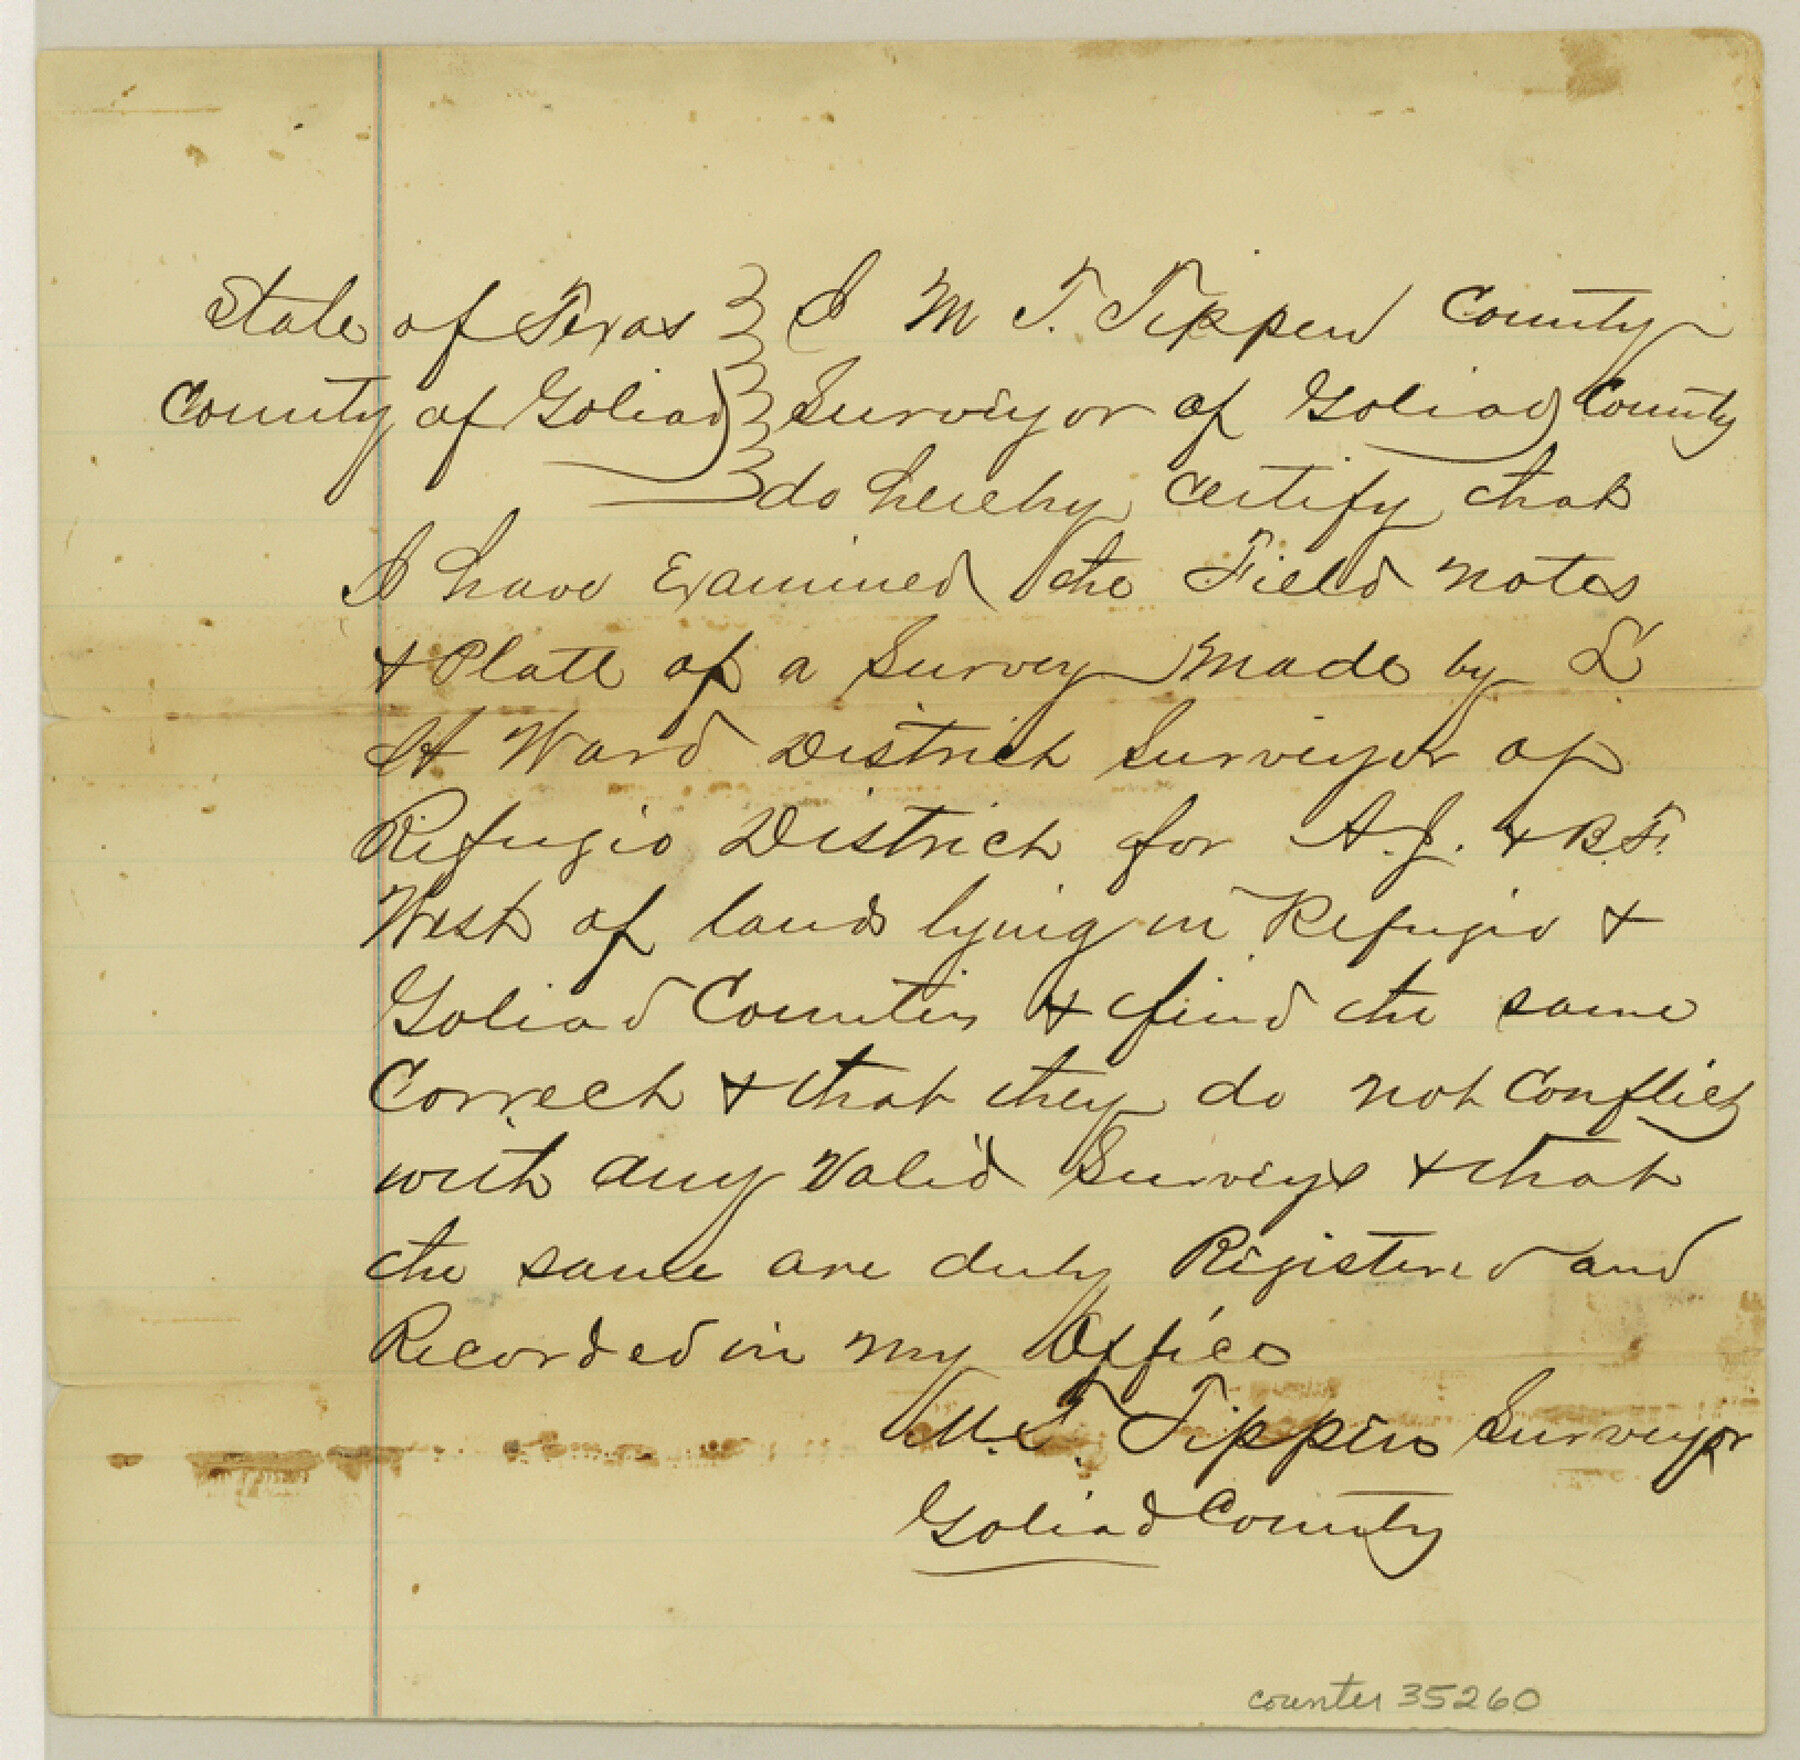 State of Texas } I M T. Tippen County
County of Goliad } Surveyor of Goliad County
do hereby certify that
I have Examined the Field notes
& Platt of a Survey made by L
H Ward District Surveyor of
Refugio District for A.J. & B.F.
West of land lying in Refugio &
Goliad Counties & find the same
Correct & that they do not Conflict
with any Valid Surveys & that
the same are duly Registered and
Recorded in my Office
M.T. Tippen Surveyor
Goliad County
counter 35260